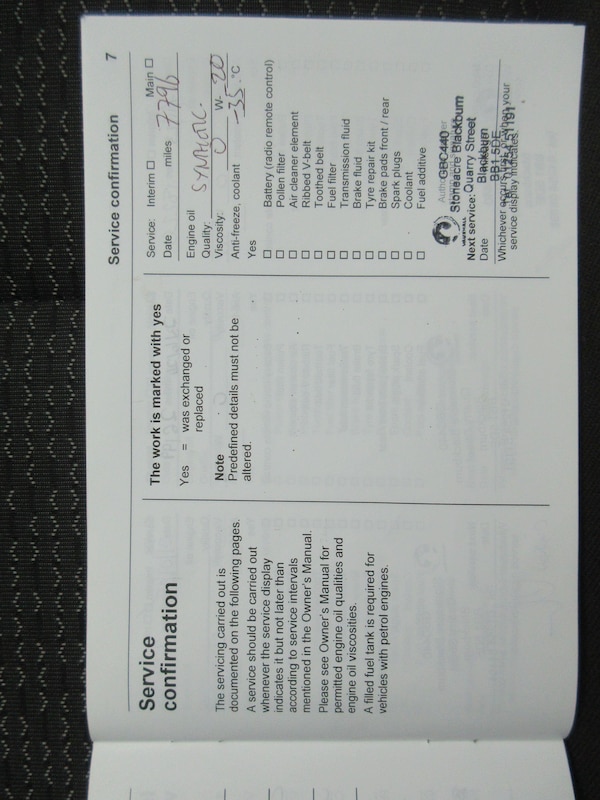 Service confirmation 7
Service
confirmation
The servicing carried out is
documented on the following pages.
A service should be carried out
whenever the service display
indicates it but not later than
according to service intervals
mentioned in the Owner's Manual.
Please see Owner's Manual for
permitted engine oil qualities and
engine oil viscosities.
A filled fuel tank is required for
vehicles with petrol engines.
The work is marked with yes
Yes = was exchanged or
replaced
Note
Predefined details must not be
altered.
Service: Interim ☐ Main ☐
Date miles 7796
Engine oil
Quality: SYNTHETIC.
Viscosity: 0 W- 20
Anti-freeze, coolant -35 °C
Yes
☐ Battery (radio remote control)
☐ Pollen filter
☐ Air cleaner element
☐ Ribbed V-belt
☐ Toothed belt
☐ Fuel filter
☐ Transmission fluid
☐ Brake fluid
☐ Tyre repair kit
☐ Brake pads front / rear
☐ Spark plugs
☐ Coolant
☐ Fuel additive
GBC440
Stoneacre Blackburn
VAUXHALL
Next service: Quarry Street
Date Blackburn
BB1 5DE
Whichever occurs when your
service display indicates.